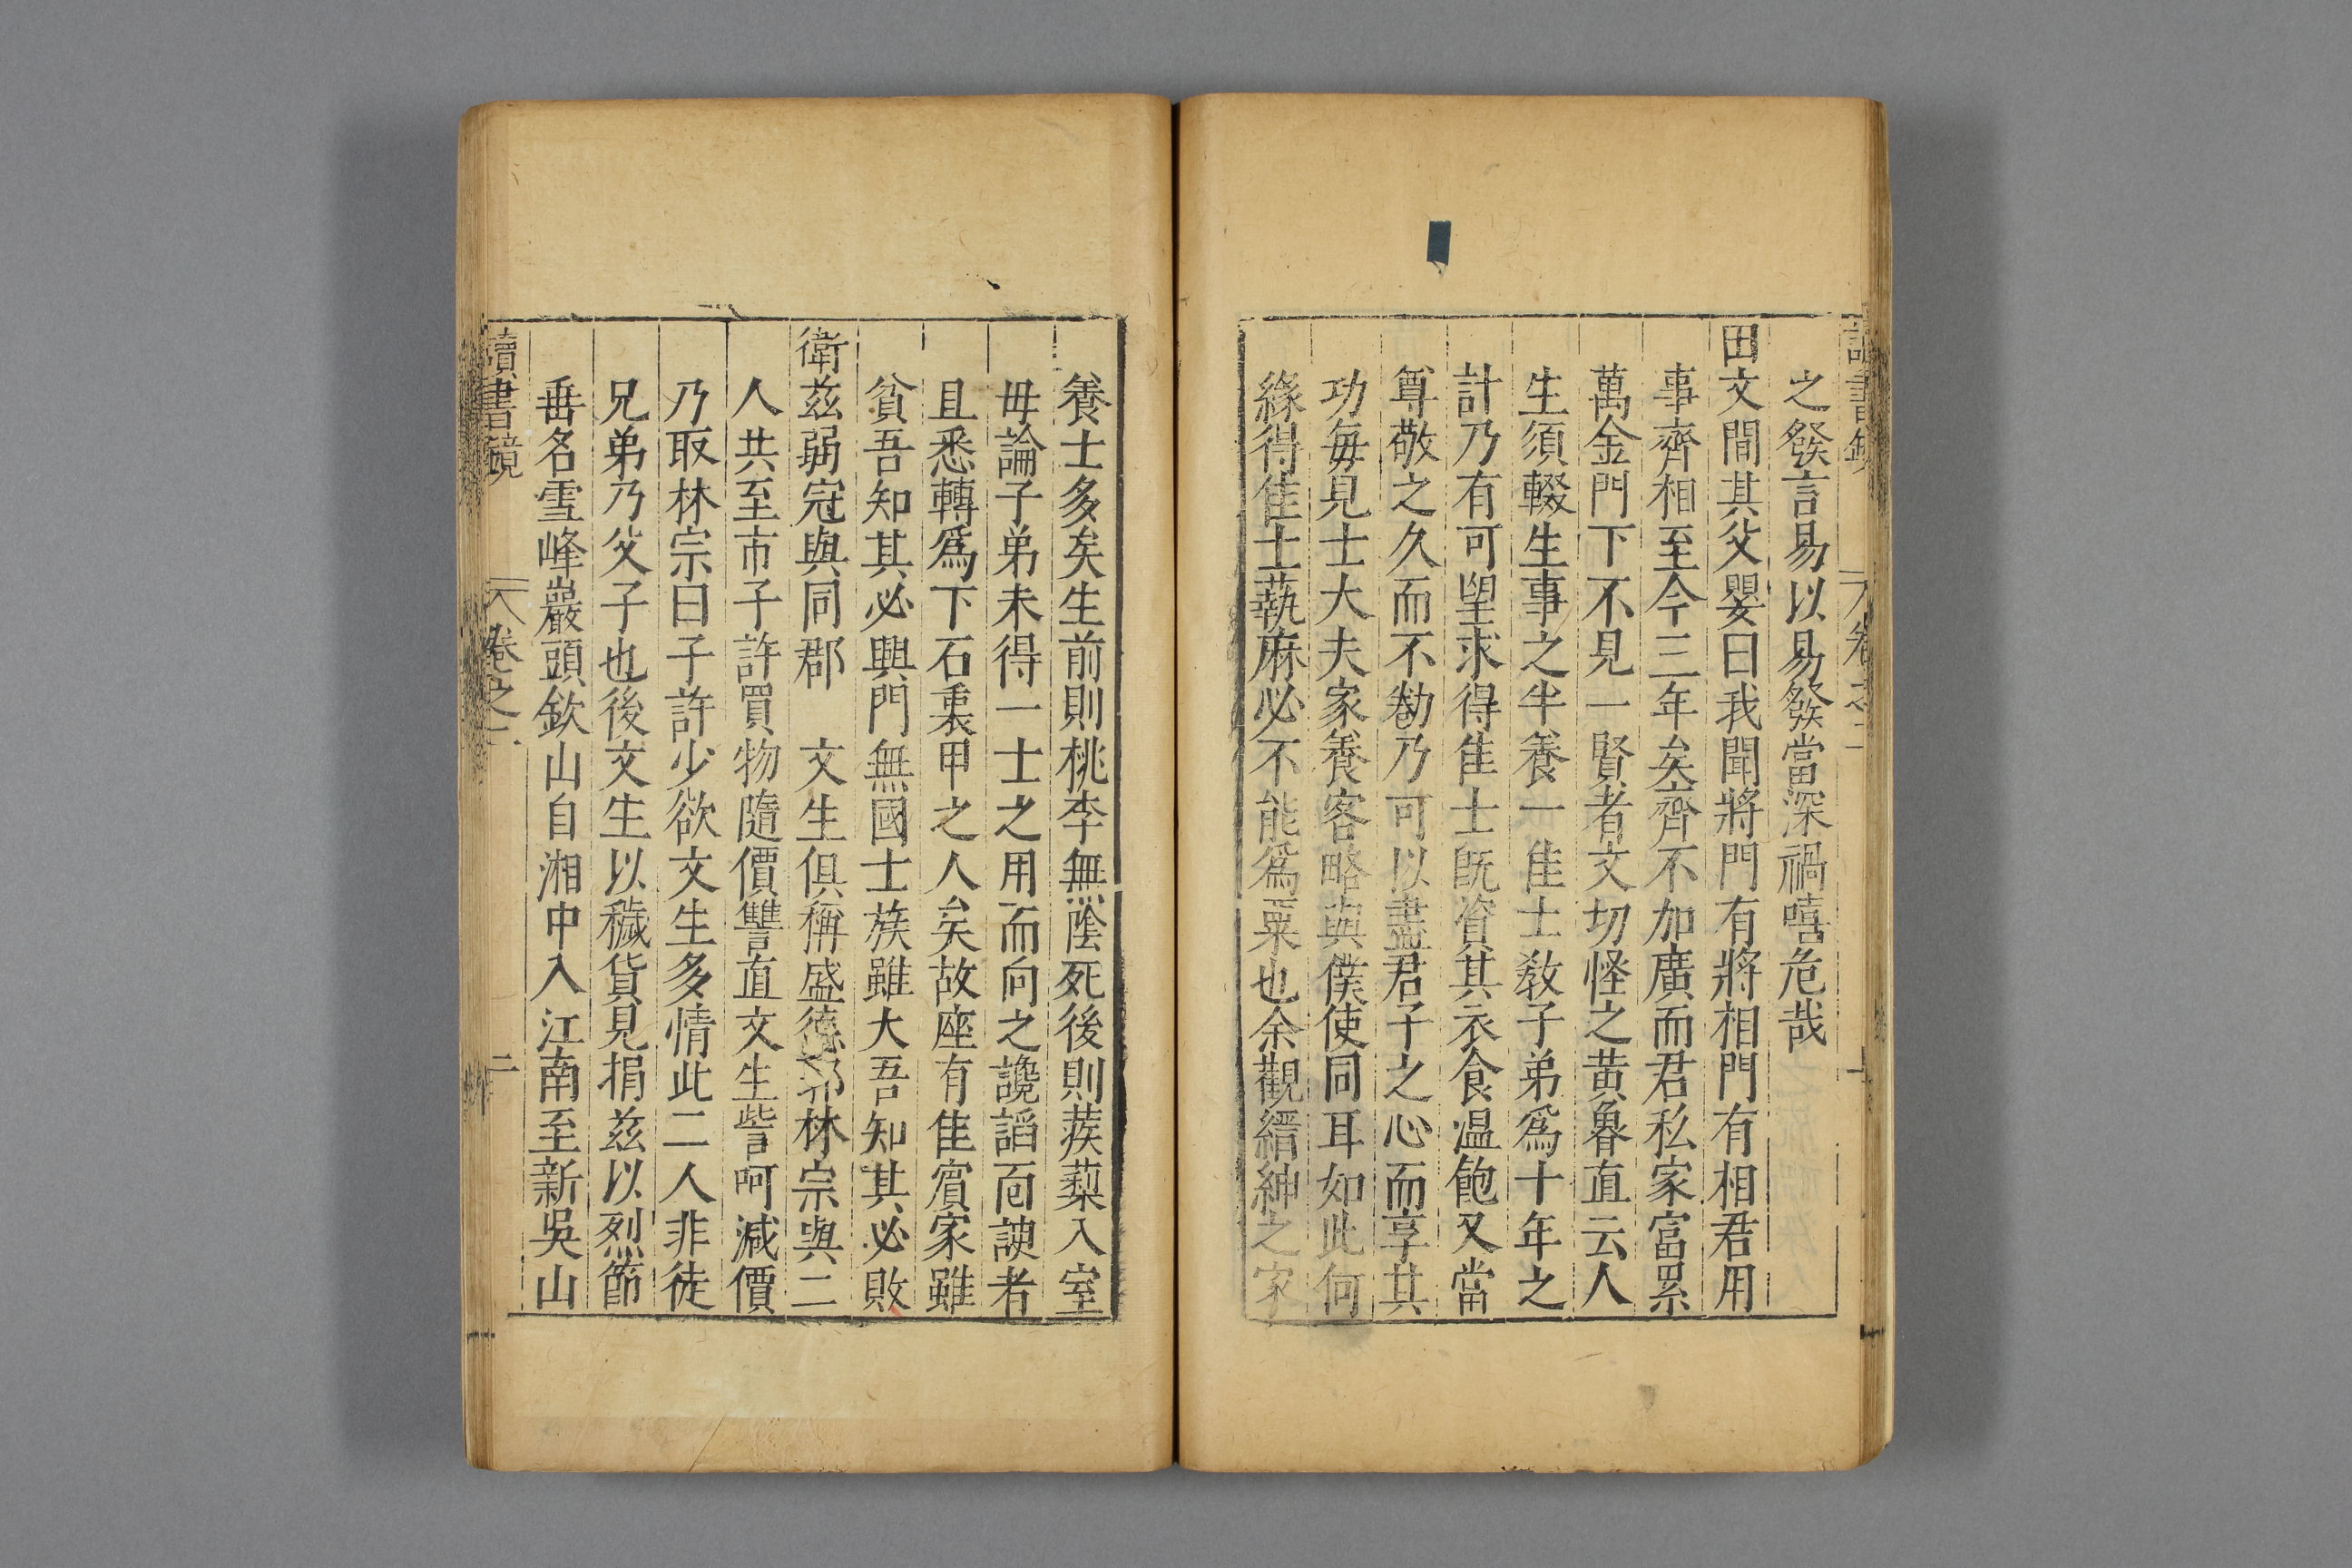 之發言易以易發當深禍嘻危哉
田文間其父嬰曰我聞將門有將相門有相君用
事齊相至今三年矣齊不加廣而君私家富累
萬金門下不見一賢者文切怪之黃魯直云人
生須輟生事之半養一佳士教子弟為十年之
計乃有可望求得佳士既資其衣食温飽又當
尊敬之久而不勌乃可以盡君子之心而享其
功每見士大夫家養客略與僕使同耳如此何
緣得佳士蓺麻必不能為粟也余觀縉紳之家
養士多矣生前則桃李無蔭死後則蒺蔾入室
毋論子弟未得一士之用而向之讒謟面諛者
且悉轉爲下石裹甲之人矣故座有佳賔家雖
貧吾知其必興門無國士族雖大吾知其必敗
衛兹弱冠與同郡 文生俱稱盛德郭林宗與二
人共至市子許買物隨價讐直文生訾呵減價
乃取林宗曰子許少欲文生多情此二人非徒
兄弟乃父子也後文生以穢貨見捐兹以烈節
垂名雪峰巖頭欽山自湘中入江南至新吳山
讀書鏡 卷之二 二